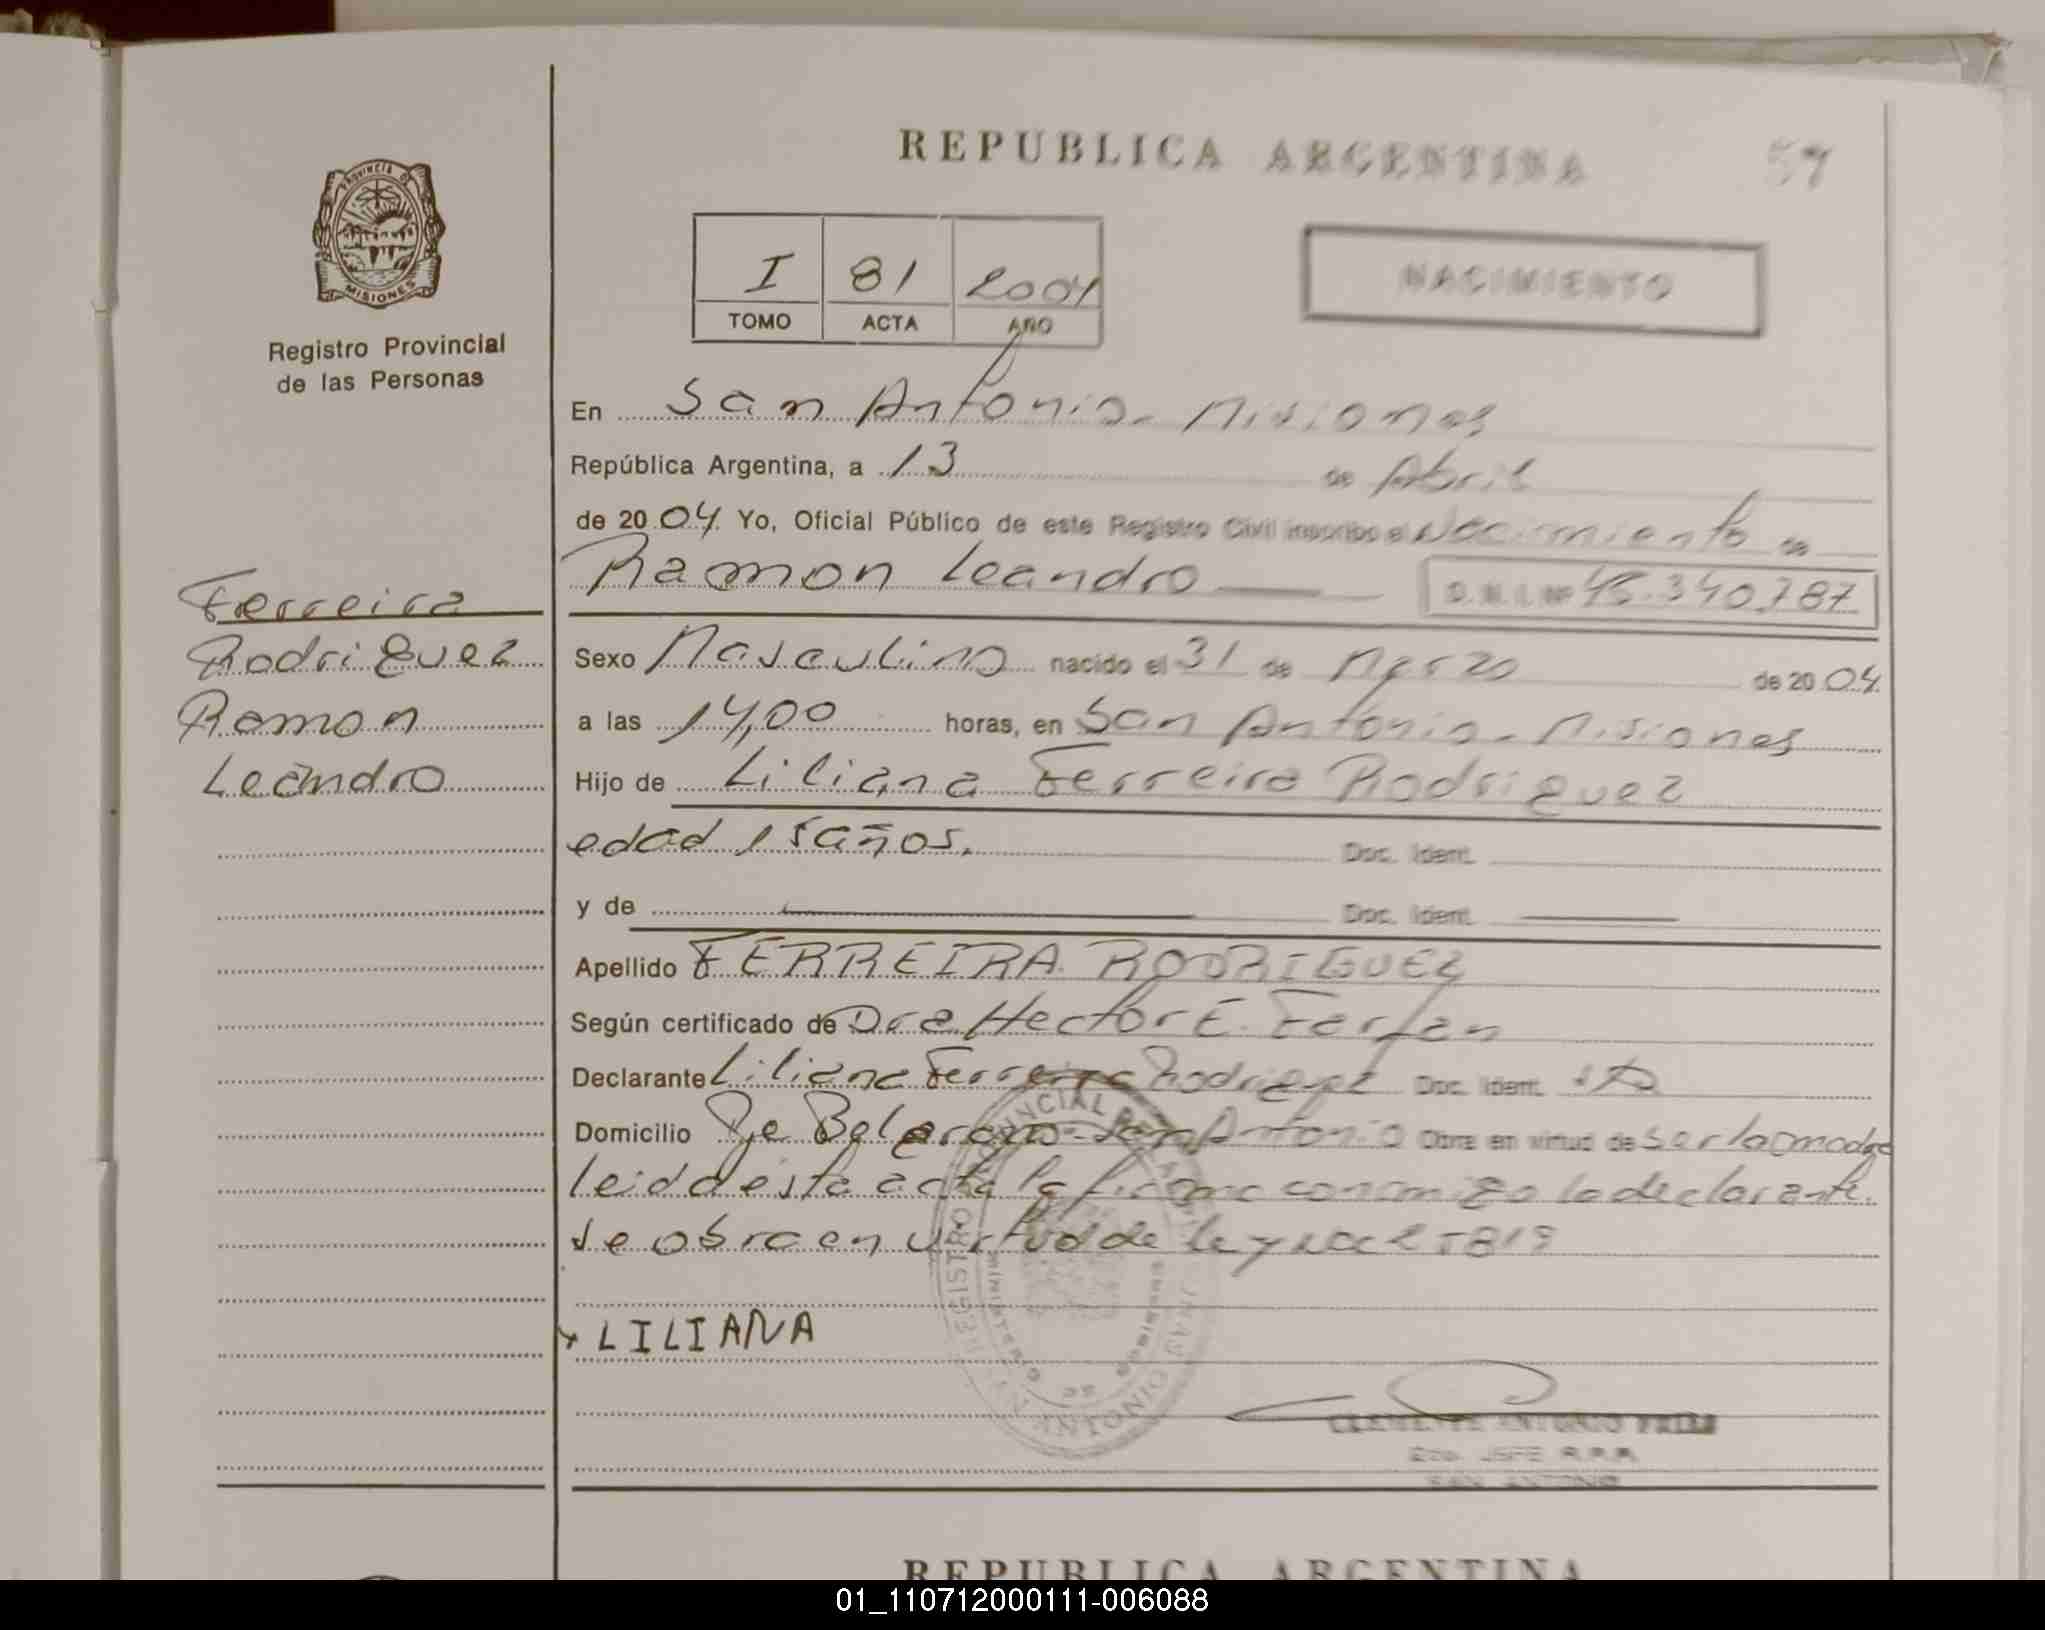 REPUBLICA ARGENTINA
PROVINCIA DE
MISIONES
Registro Provincial
de las Personas
I 81 2004
TOMO ACTA AÑO
NACIMIENTO
En San Antonio - Misiones
República Argentina, a 13 de Abril
de 2004 Yo, Oficial Público de este Registro Civil inscribo el Nacimiento de
Ramon Leandro
D.N.I. Nº 45.340.787
Ferreira
Rodriguez
Ramon
Leandro
Sexo Masculino nacido el 31 de Marzo de 2004
a las 14,00 horas, en San Antonio - Misiones
Hijo de Liliana Ferreira Rodriguez
edad 15 años. Doc. Ident.
y de Doc. Ident.
Apellido FERREIRA RODRIGUEZ
Según certificado de Dra Hector E. Farfan
Declarante Liliana Ferreira Rodriguez Doc. Ident.
Domicilio San Antonio Obra en virtud de ser la madre
leida esta acta la firma conmigo la declarante.
se obra en virtud de ley
LILIANA
REGISTRO PROVINCIAL
SAN ANTONIO
CLEMENTE ANTONIO
JEFE R.P.P.
SAN ANTONIO
REPUBLICA ARGENTINA
01_110712000111-006088